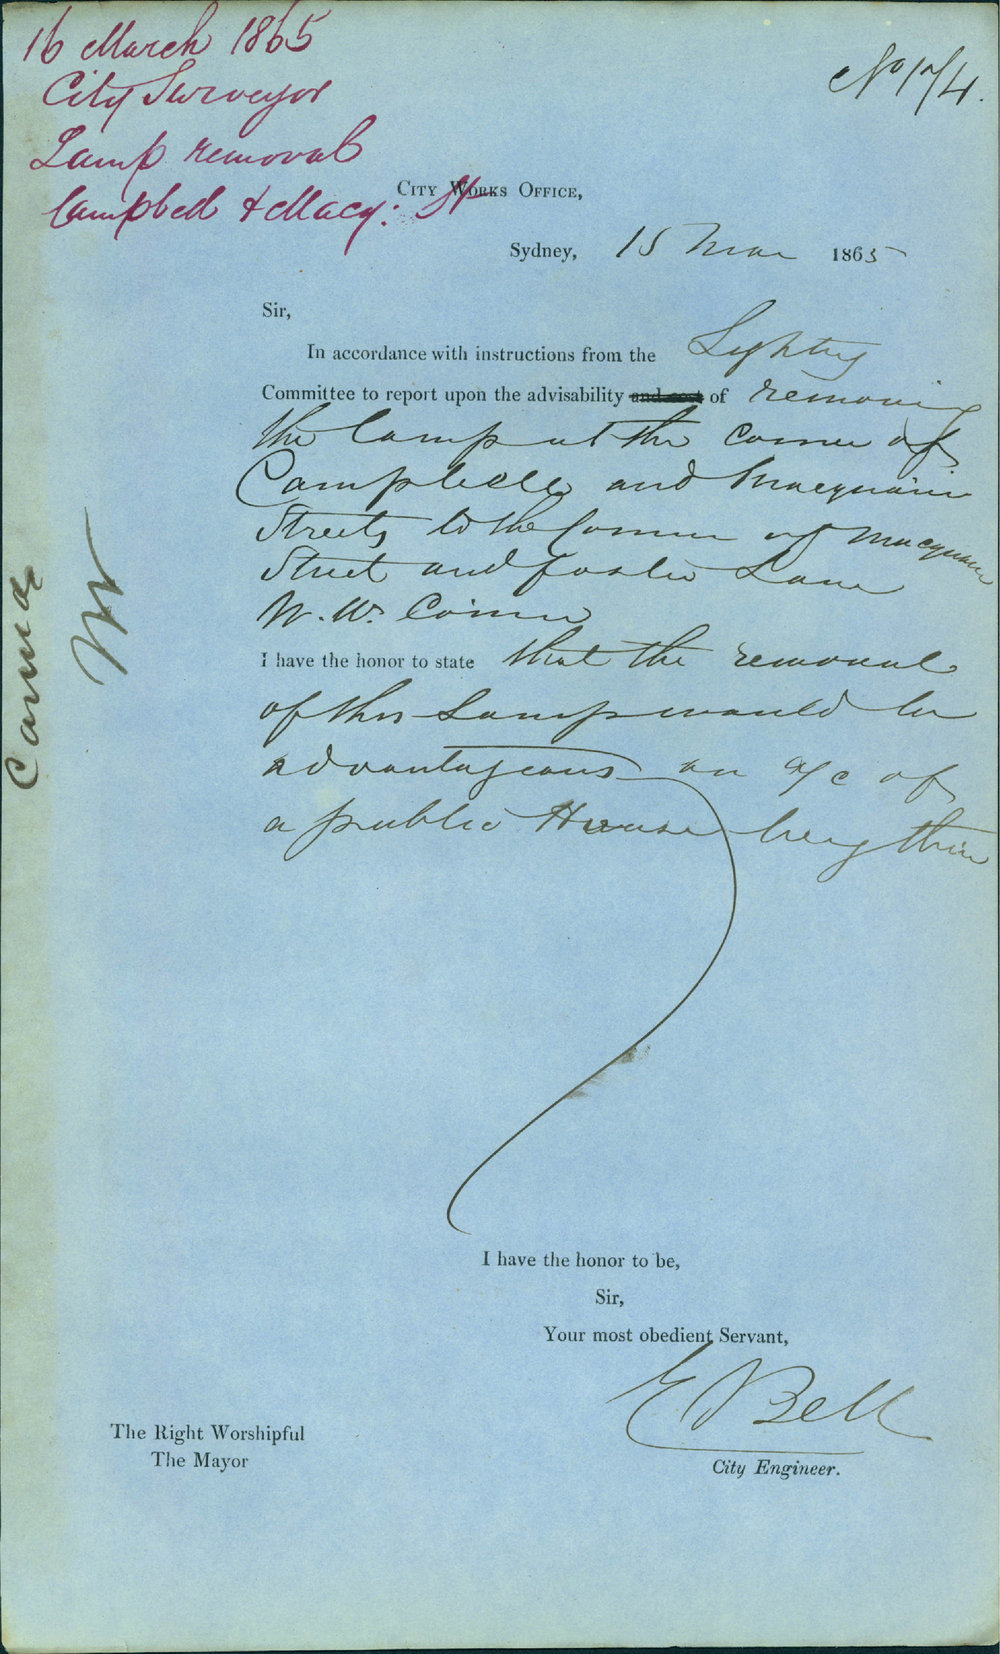 16 March 1865
City Surveyor
Lamp removal
Campbell & Macq: St
No 174.
City Works Office,
Sydney, 15 Mar 1865
Sir,
In accordance with instructions from the Lighting
Committee to report upon the advisability and cost of removing
the Lamp at the corner of
Campbell and Macquarie
Streets to the Corner of Macquarie
Street and Foster Lane
N. W. Corner
I have the honor to state that the removal
of this Lamp would be
advantageous on a/c of
a public House being there
I have the honor to be,
Sir,
Your most obedient Servant,
E Bell
City Engineer.
The Right Worshipful
The Mayor